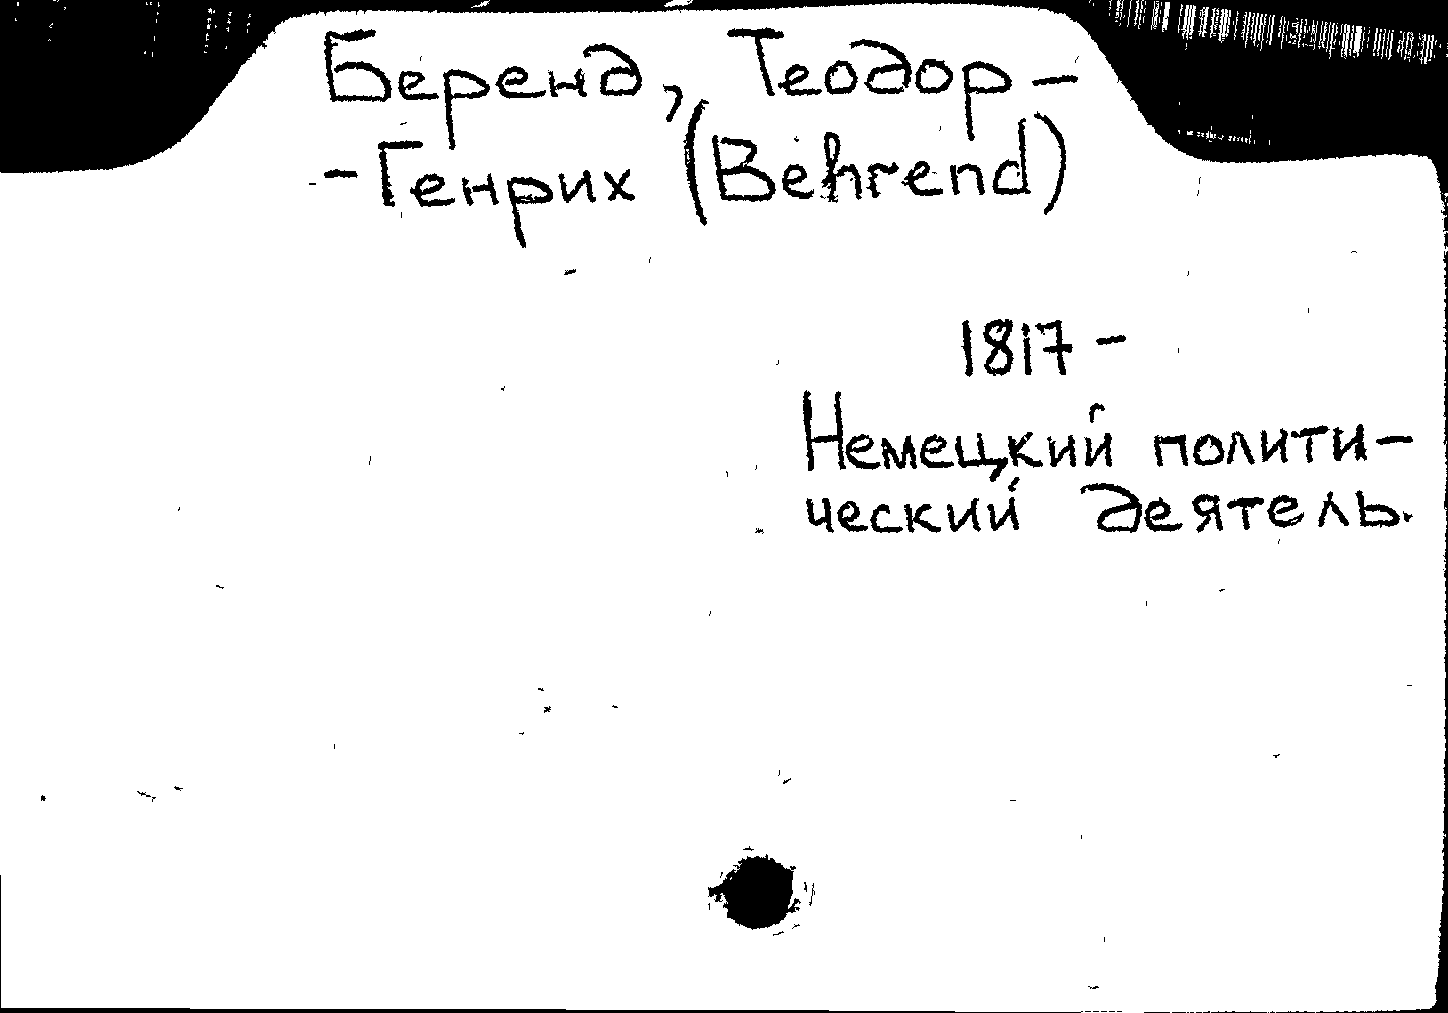 Беренд, Теодор-
-Генрих (Behrend)
1817-
Немецкий полити-
ческий деятель.